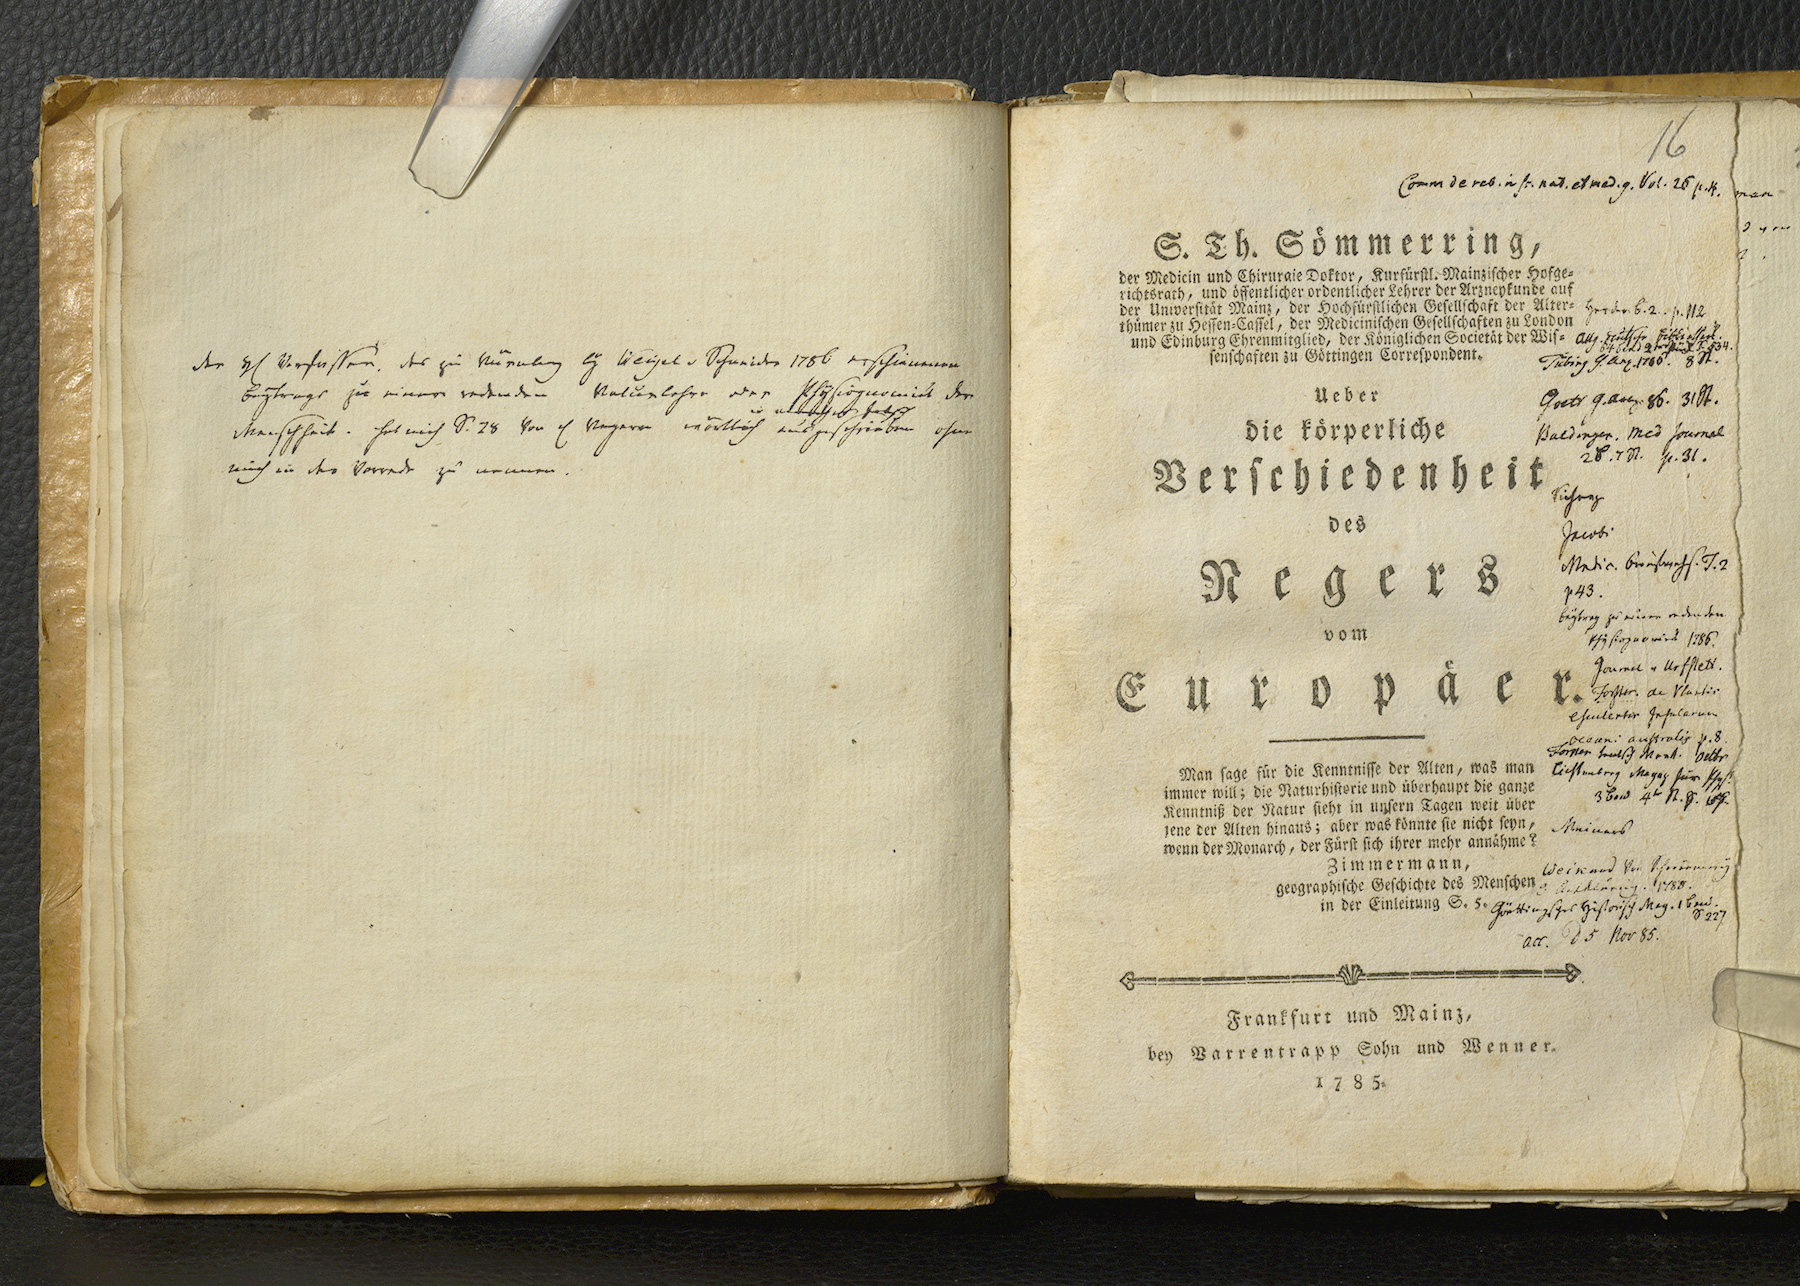 der Verfasser des zu Nürnberg by Weigel u Schneider 1786 erschienenen
beytrags zu einer redenden Naturlehre oder Physiognomik der
Menschheit. hat mich S. 28 von Negern wörtlich ausgeschrieben ohne
mich in der Vorrede zu nennen.
16
Comm de reb. in sc. nat. et med. g. Vol. 26 p. 4.
S. Th. Sömmerring,
der Medicin und Chirurgie Doktor, Kurfürstl. Mainzischer Hofge-
richtsrath, und öffentlicher ordentlicher Lehrer der Arzneykunde auf
der Universität Mainz, der Hochfürstlichen Gesellschaft der Alter-
thümer zu Hessen-Cassel, der Medicinischen Gesellschaften zu London
und Edinburg Ehrenmitglied, der Königlichen Societät der Wis-
senschaften zu Göttingen Correspondent.
Ueber
die körperliche
Verschiedenheit
des
Negers
vom
Europäer.
Man sage für die Kenntnisse der Alten, was man
immer will; die Naturhistorie und überhaupt die ganze
Kenntniß der Natur sieht in unsern Tagen weit über
jene der Alten hinaus; aber was könnte sie nicht seyn,
wenn der Monarch, der Fürst sich ihrer mehr annähme?
Zimmermann,
geographische Geschichte des Menschen
in der Einleitung S. 5.
Frankfurt und Mainz,
bey Varrentrapp Sohn und Wenner.
1785.
Herder. b. 2. p. 112
Allg. deutsche Bibliothek.
Tübing g. Anz. 1786. 8 St.
Goett g. Anz. 86. 31 St.
Baldinger. Med Journal
2 B. 7 St. p. 31.
Jacobi
Medic. T. 2
p 43.
beytrag zu einer redenden
Physiognomik 1786.
Forster. de Plantis
esculentis Insularum
oceani australis p. 8
Forster teutsch Merk. Octbr
Lichtenberg Magaz für Phys.
3 Band 4t St. S.
Meiners
1788.
Göttingsches Historisch Mag. 1 Band.
S 227
acc. d 5 Nov 85.